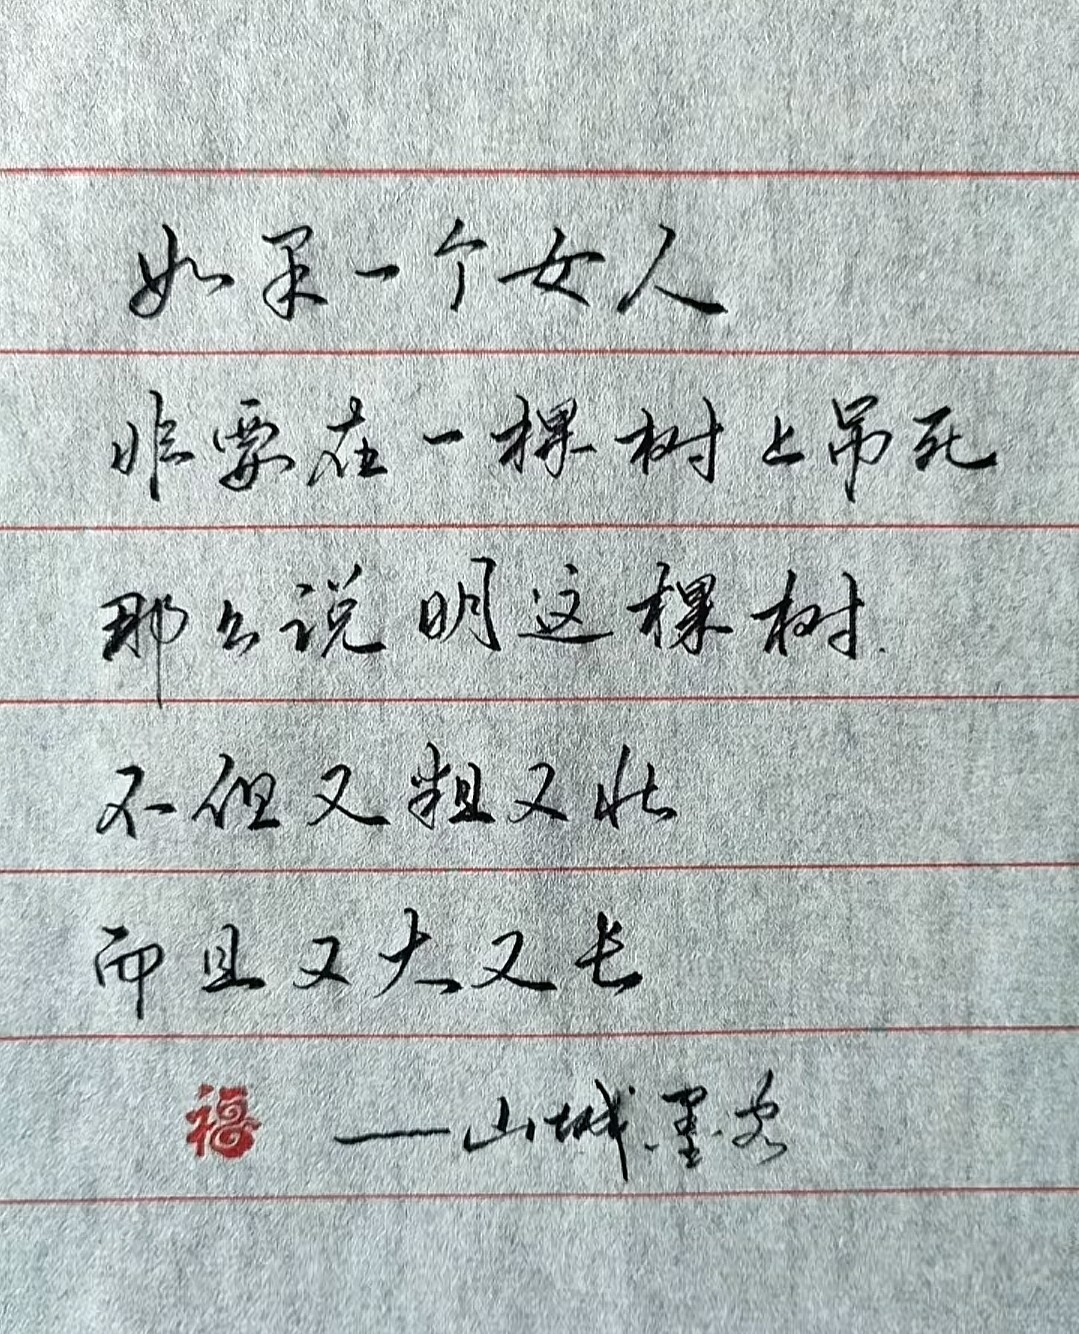 如果一个女人
非要在一棵树上吊死
那么说明这棵树
不但又粗又壮
而且又大又长
福 ——山城墨客